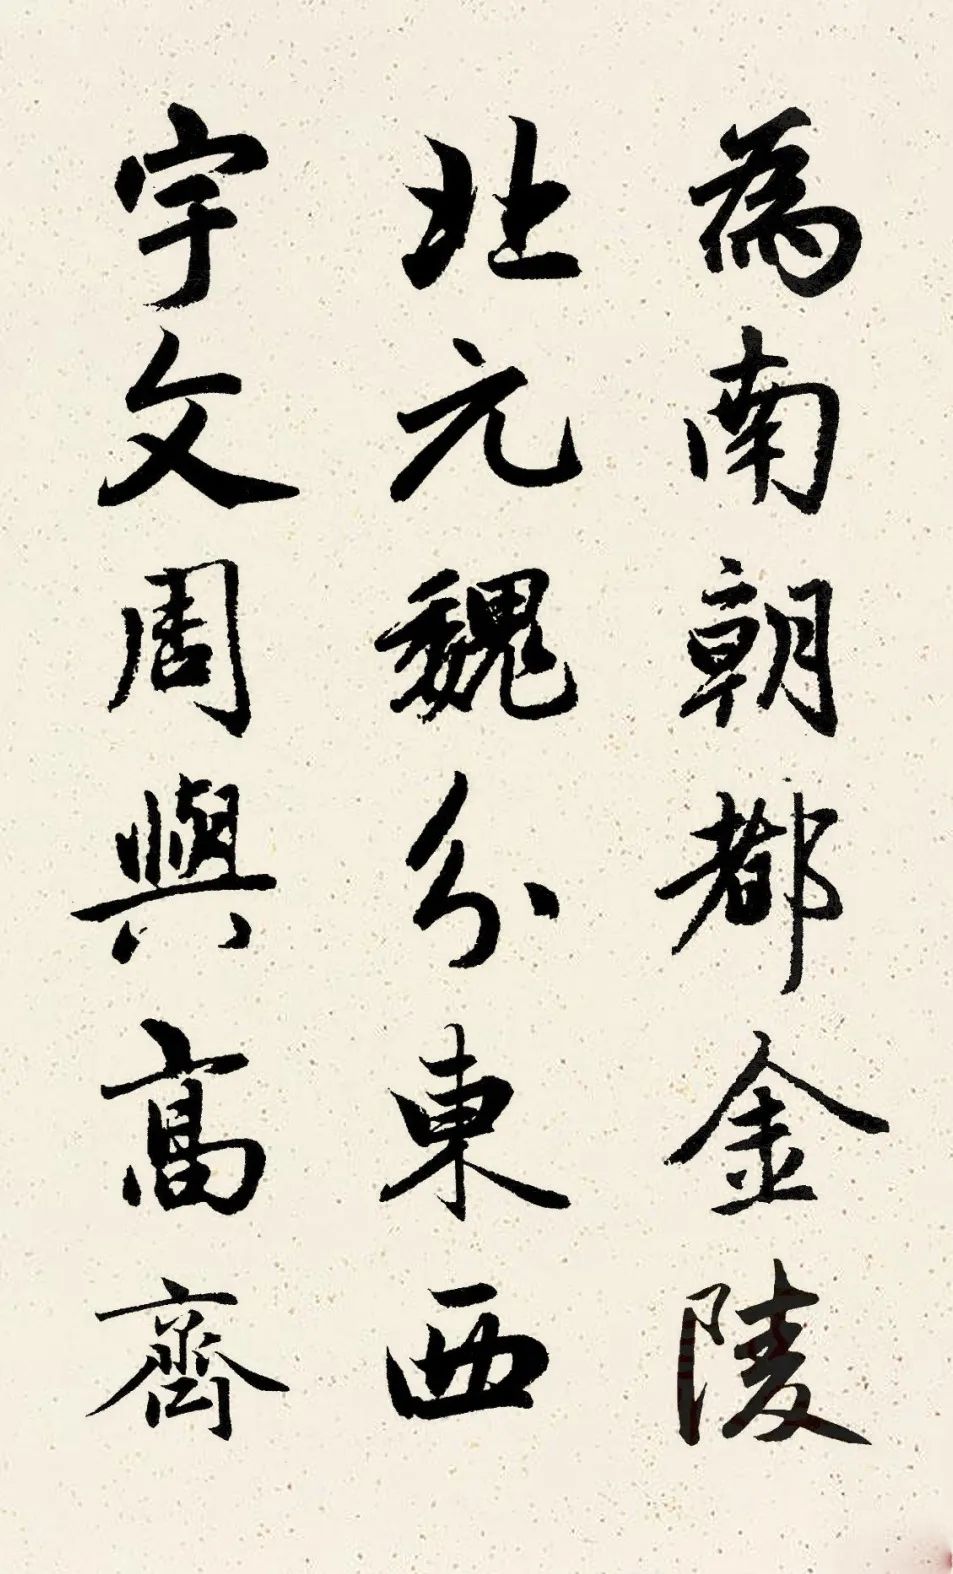 為南朝都金陵
北元魏分東西
宇文周與高齊